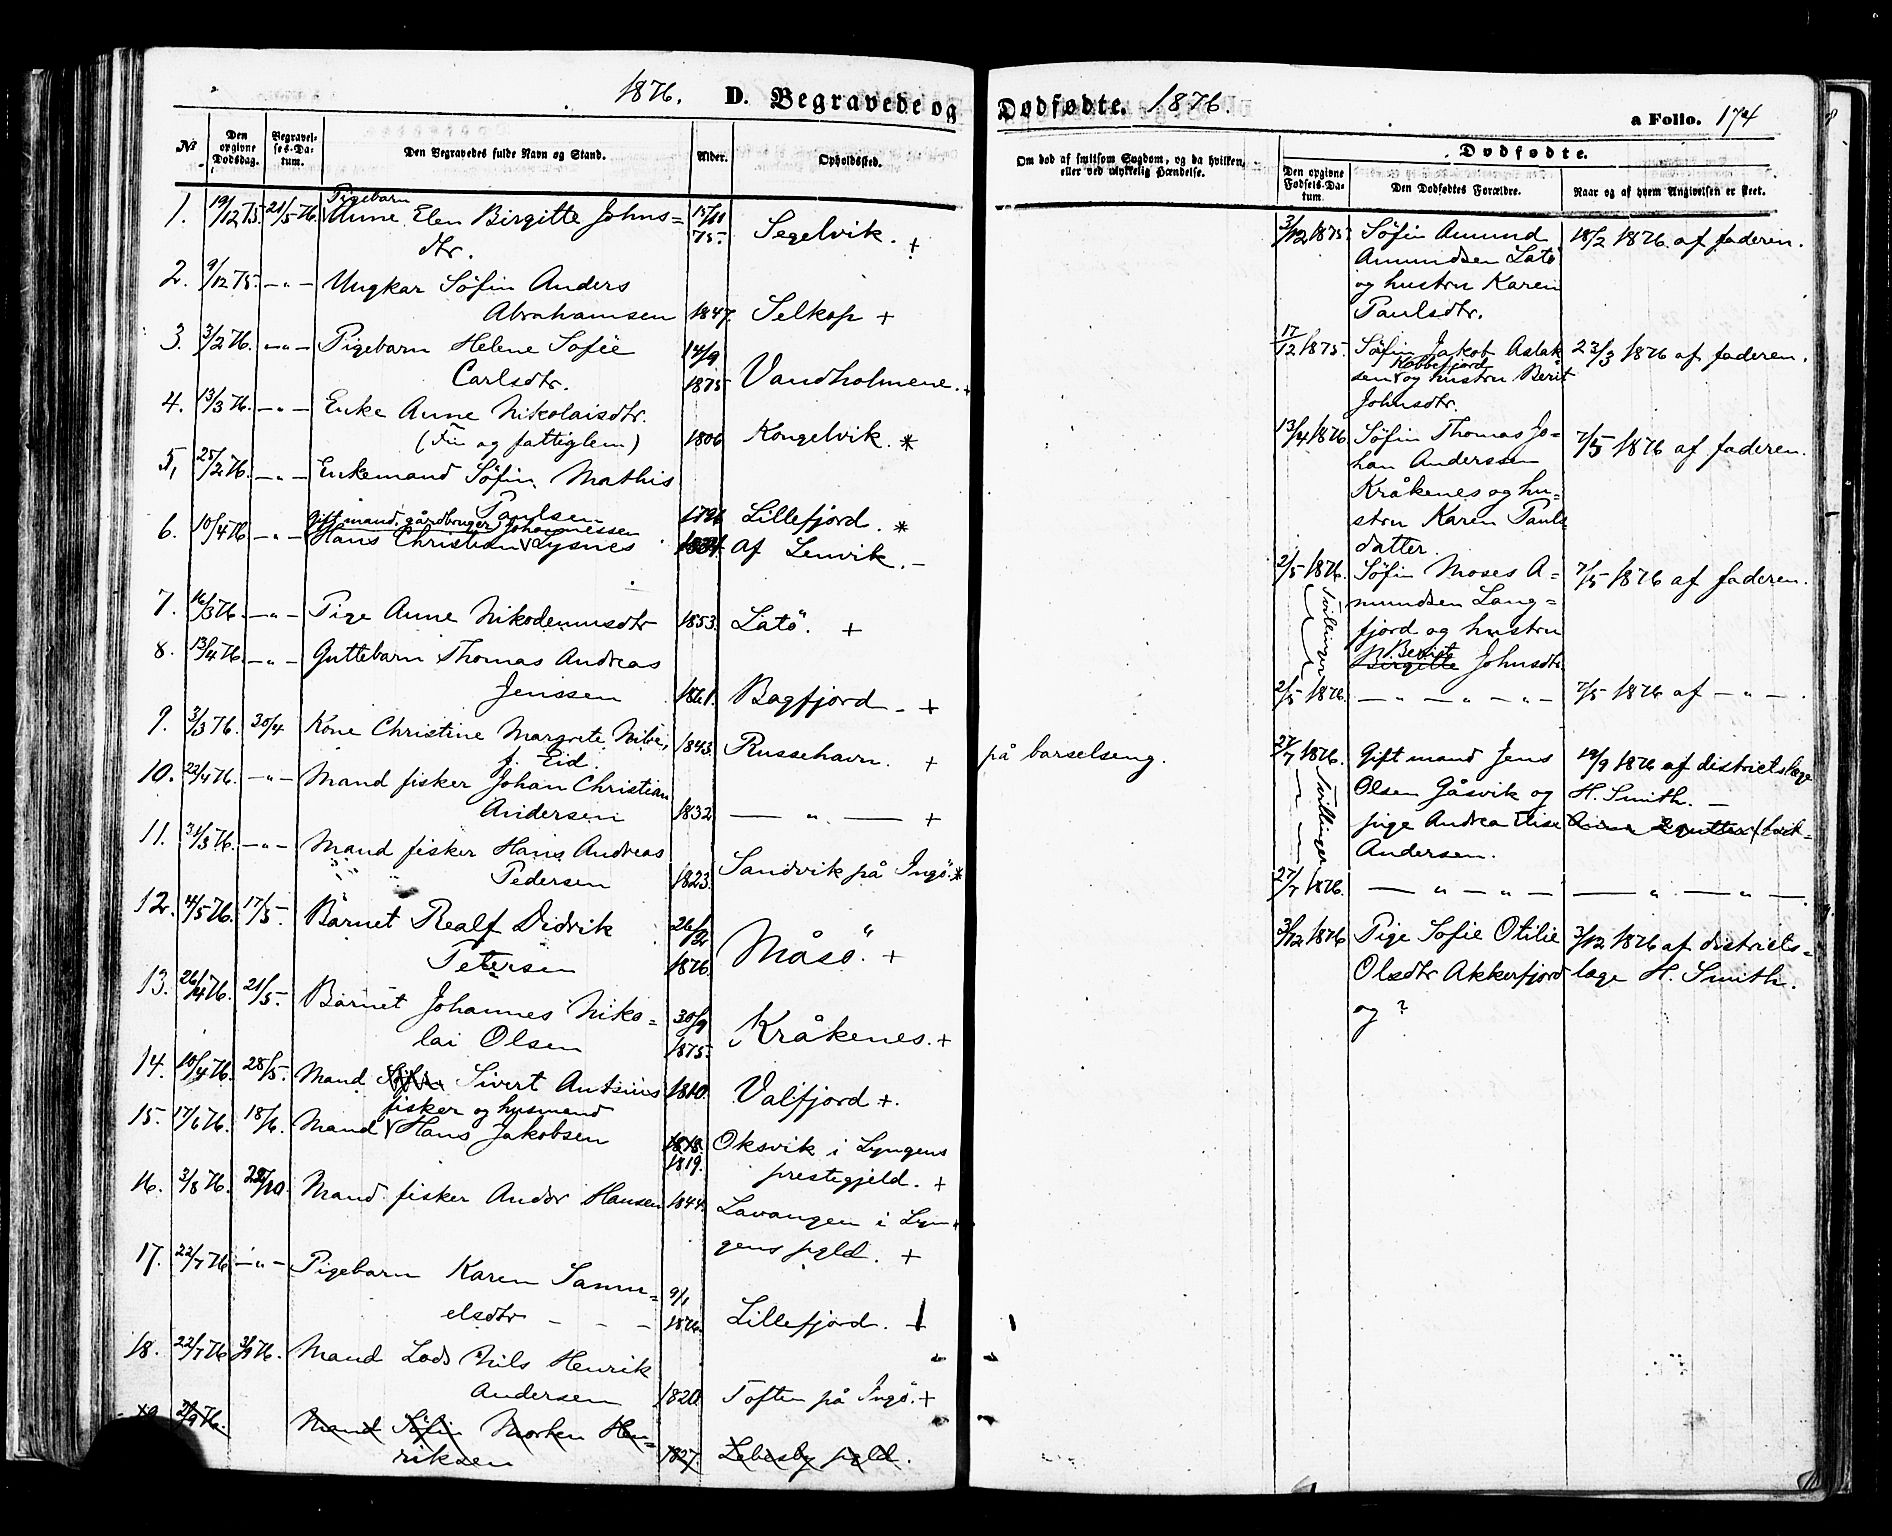 1876. D. Begravede og Dødfødte. 1876.
a Folio. 174
No
Den opgivne Dødsdag.
Begravelses-Datum.
Den Begravedes fulde Navn og Stand.
Alder.
Opholdssted.
Om død af smitsom Sygdom, og da hvilken, eller ved ulykkelig Hændelse.
Dødfødte.
Den opgivne Fødsels-Datum.
Den Dødfødtes Forældre.
Naar og af hvem Angivelsen er skeet.
1. 19/12 75. 21/5 76. Pigebarn Anne Elen Birgitte Johns=
dtr. 15/11 75. Segelvik. +
2. 9/12 75. — " — Ungkar Søfin Anders
Abrahamsen 1847. Selkop +
3. 3/2 76. — " — Pigebarn Helene Sofie
Carlsdtr. 14/9 1875 Vandholmene. +
4. 13/3 76. — " — Enke Anne Nikolaisdtr.
(Fin og fattiglem) 1806 Kongelvik. *
5, 25/2 76. — " — Enkemand Søfin Mathis
Paulsen Lillefjord. *
6. 10/4 76 — " — Gift mand, gårdbruger, Johannessen
Hans Christian Lysnes Af Lenvik. —
7. 16/3 76. — " — Pige Anne Nikodemusdtr 1853. Latø. +
8. 13/4 76. — " — Guttebarn Thomas Andreas
Jenssen 1861. Bagfjord — +
9. 3/3 76. 30/4 Kone Christine Margrete
f. Eid. 1843. Russehavn. + på barselseng.
10. 22/4 76. — " — Mand fisker Johan Christian
Andersen 1832 — " — +
11. 31/3 76. — " — Mand fisker Hans Andreas
Pedersen 1823. Sandvik på Ingø. *
12. 4/5 76. 17/5. Barnet Realf Didrik
Petersen 1876. Måsø. +
13. 26/4 76. 21/5. Barnet Johannes Niko=
lai Olsen 30/9 1875. Kråkenes. +
14. 10/4 76. 28/5. Mand Søfin Sivert Antsius 1810. Valfjord +.
15. 17/6 76. 18/6. fisker og husmand
Mand Hans Jakobsen 1818. 1819. Oksvik i Lyngens
prestegjeld. +
16. 3/8 76. Mand fisker Andor Hansen 1844. Lavangen i Lyn=
gens pgld. +
17. 22/7 76 — " — Pigebarn Karen Samu=
elsdtr — — — 9/1 1876. Lillefjord. +
18. 22/7 76 Mand Lods Nils Henrik
Andersen 1820. Toften på Ingø. +
19. 76. Mand Søfin Morten Hen=
riksen 1827. Lebesby pgld.
3/12 1875. Søfin Amund 18/2 1876. af faderen.
Amundsen Latø
og hustru Karen
Paulsdtr.
17/12 1875. Søfin Jakob Aslak 23/3 1876 af faderen.
Kobbefjord
sen og hustru Berit
Johnsdtr.
13/4 1876 Søfin Thomas Jo= 7/5 1876 af faderen.
han Anderssen
Kråkenes og hu=
stru Karen Pauls
datter.
2/5 1876. Søfin Moses A= 7/5 1876 af faderen.
Tvillinger
mundsen Lang=
fjord og hustru
Birgitte Johnsdtr
2/5 1876. — " — " — " — 7/5 1876 af — " — .
27/7 1876. Gift mand Jens 19/9 1876 af districtslæge
Tvillinger
Olsen Gåsvik og H. Smith. —
pige Andrea Elise
Andersen.
27/7 1876. — " — " — — " — " —
3/12 1876 Pige Sofie Otilie 3/12 1876 af districts=
Olsdtr Akkerfjord læge H. Smith.
og ?